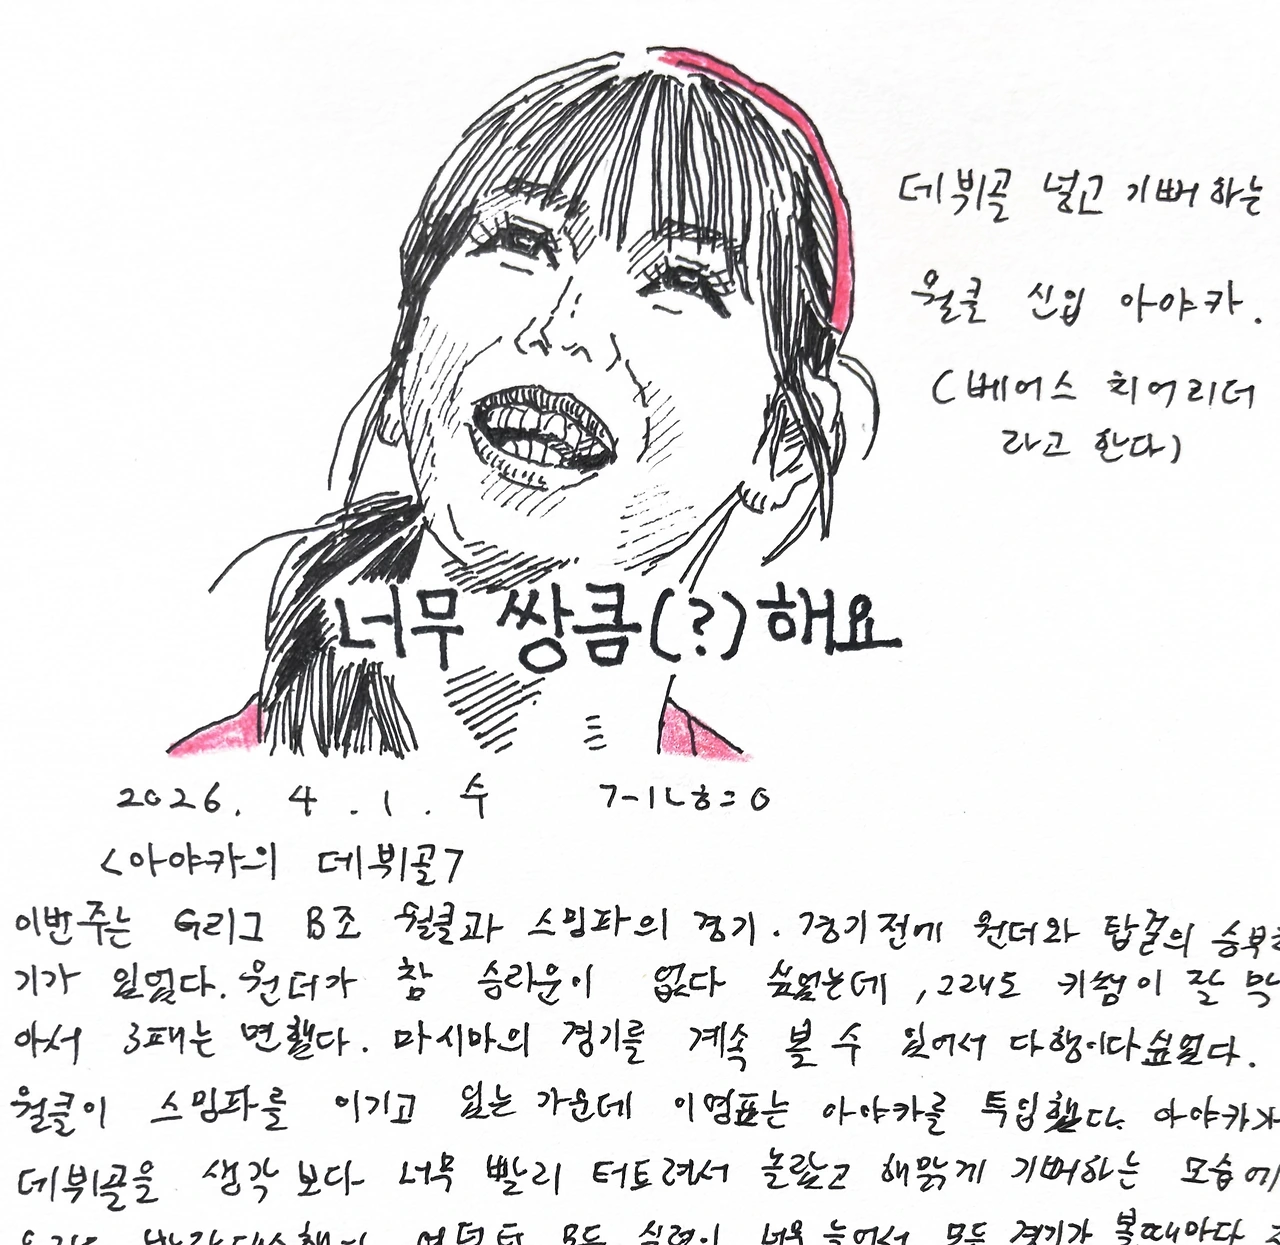 데뷔골 넣고 기뻐하는
월클 신입 아야카.
(베어스 치어리더
라고 한다)
너무 쌍큼(?)해요
2026. 4. 1. 수
<아야카의 데뷔골>
이번주는 G리그 B조 월클과 스밍파의 경기. 경기전에 원더와 탑걸의 승부차
기가 있었다. 원더가 참 승라운이 없다 싶었는데, 그래도 키썸이 잘 막
아서 3패는 면했다. 마시마의 경기를 계속 볼 수 있어서 다행이다싶었다.
월클이 스밍파를 이기고 있는 가운데 이영표는 아야카를 투입했다. 아야카가
데뷔골을 생각보다 너무 빨리 터트려서 놀랐고 해맑게 기뻐하는 모습에
모두 실력이 너무 늘어서 모두 경기가 볼때마다